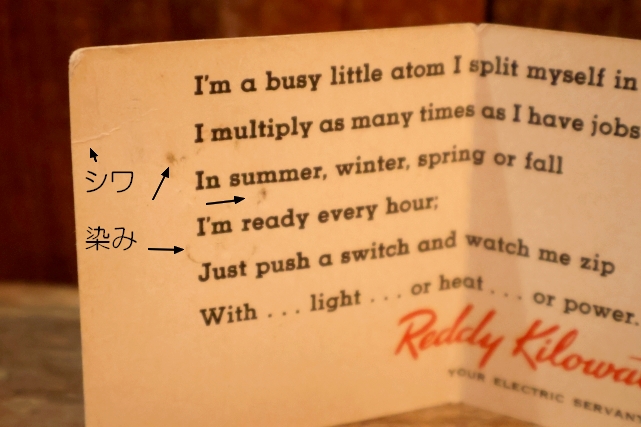 I'm a busy little atom I split myself in
I multiply as many times as I have jobs
In summer, winter, spring or fall
シワ
I'm ready every hour;
染み
Just push a switch and watch me zip
With ... light ... or heat ... or power.
Reddy Kilowa
YOUR ELECTRIC SERVANT